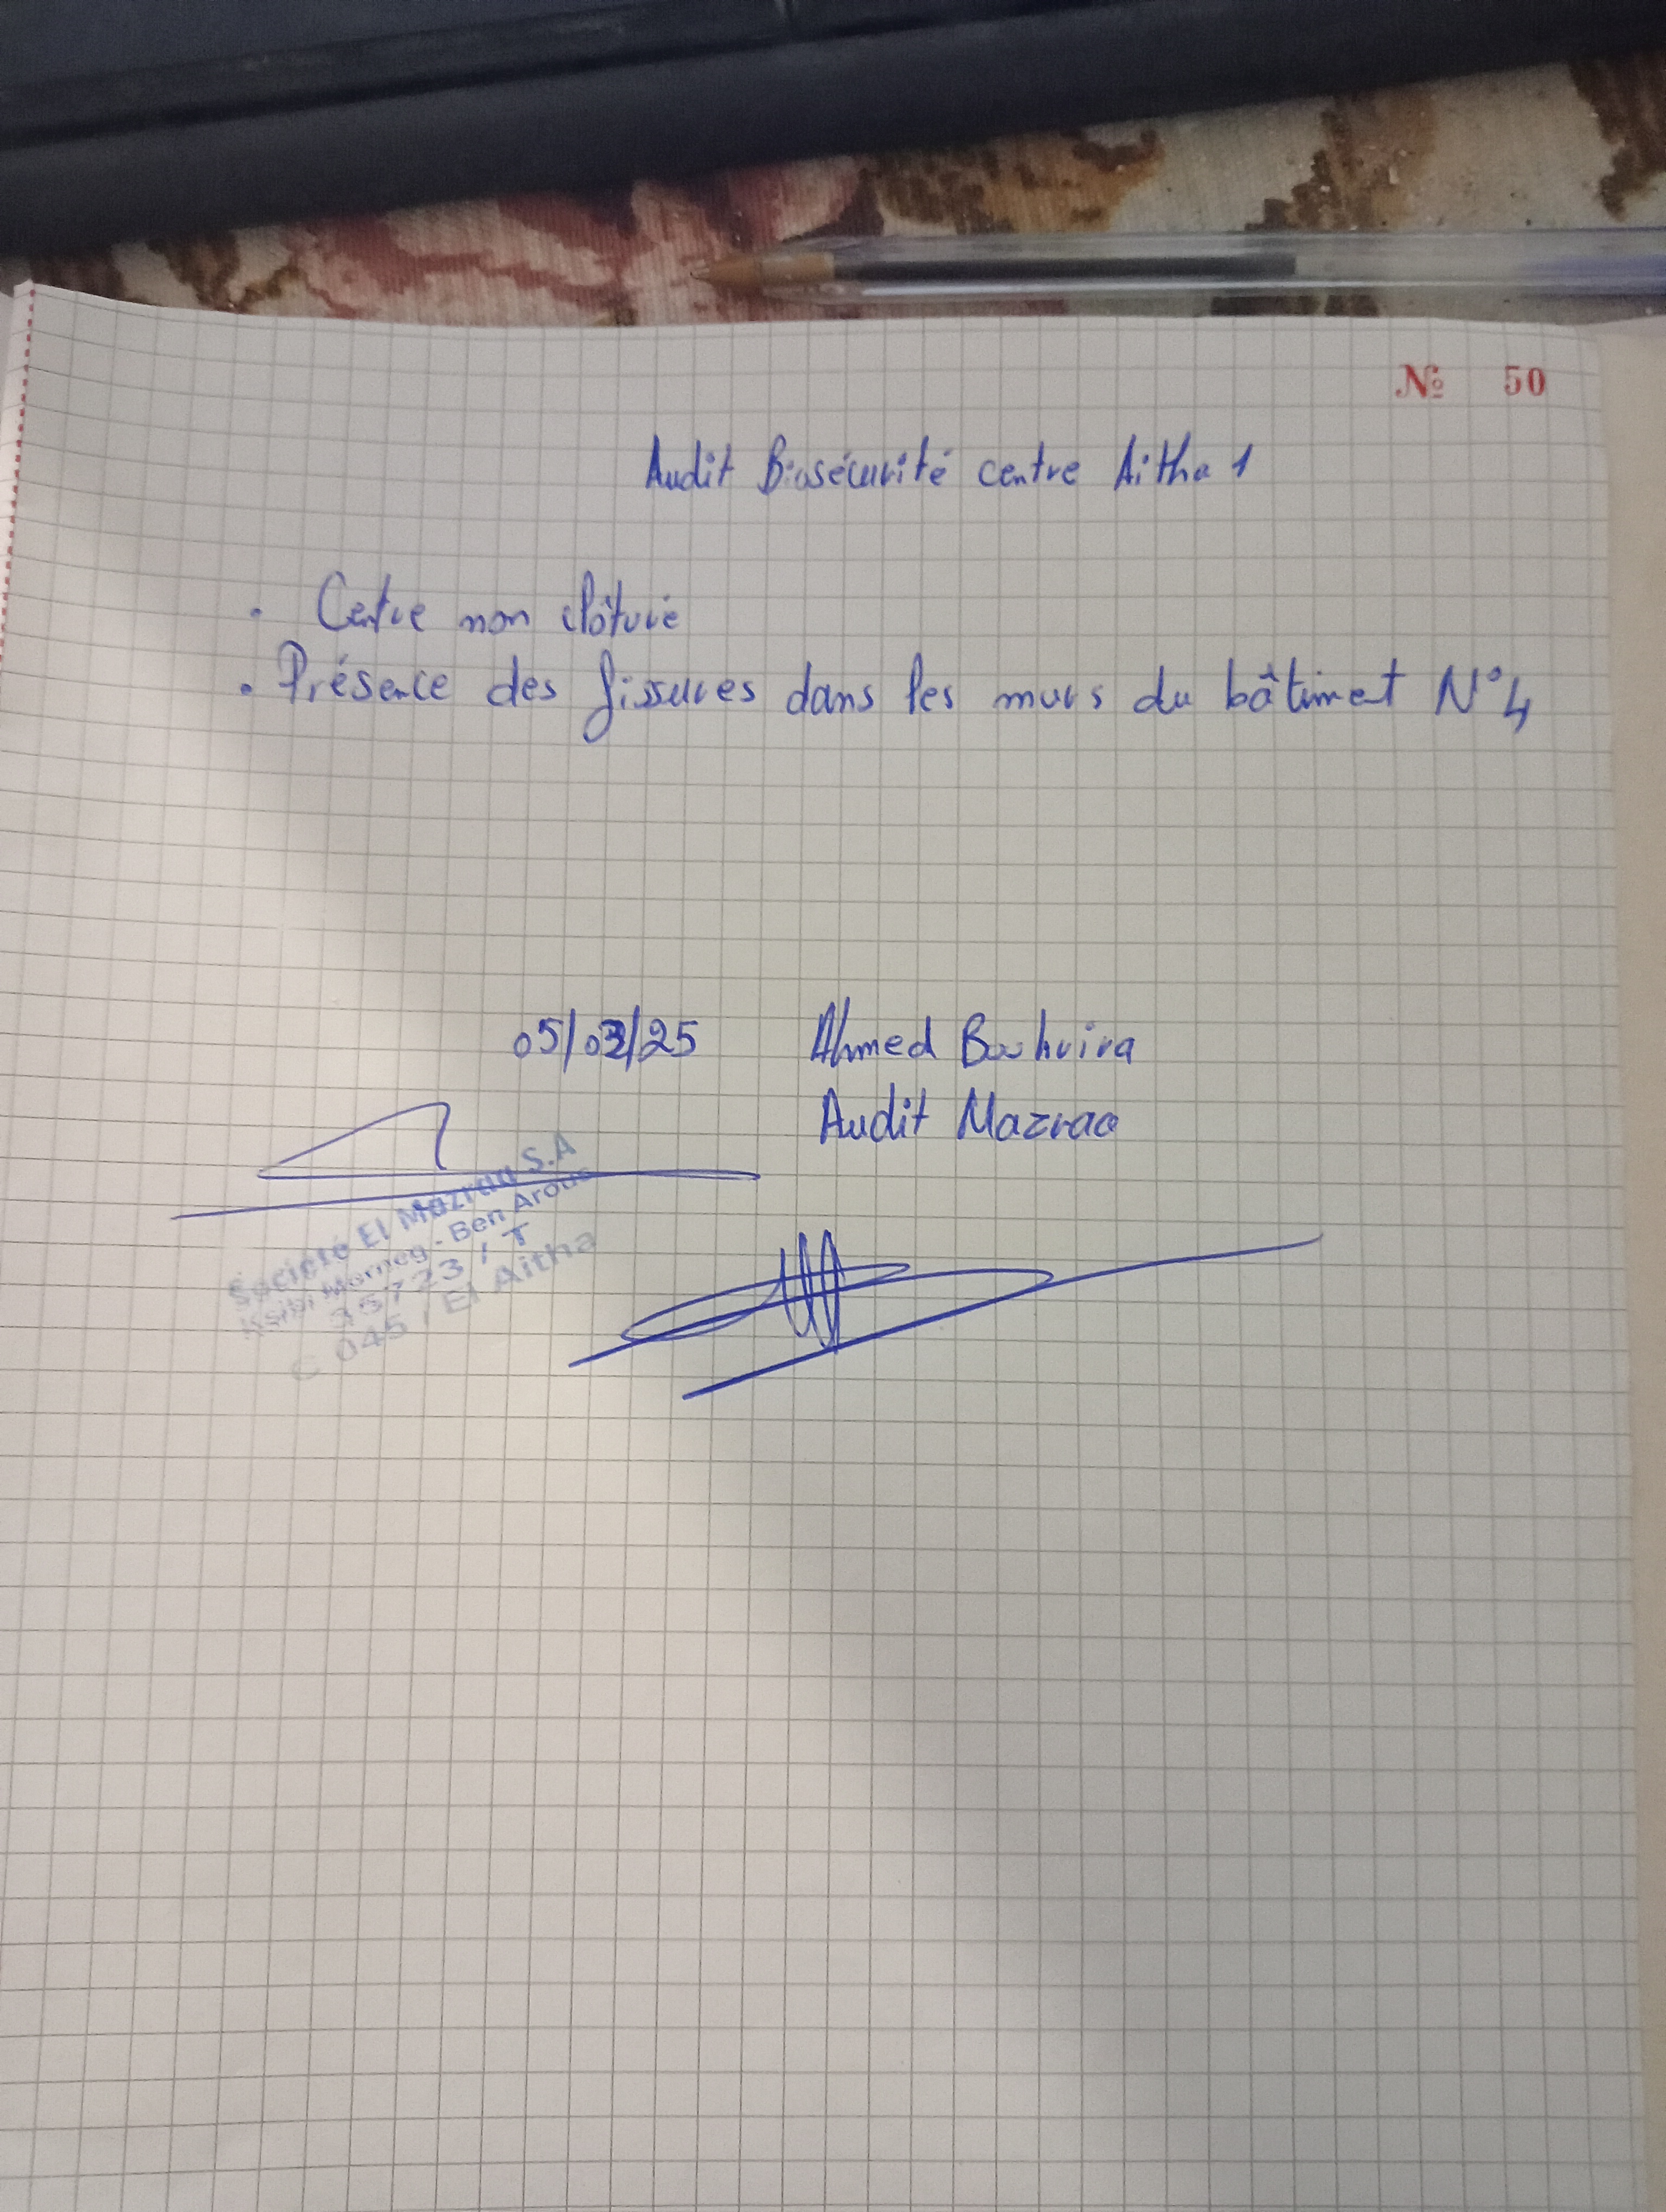 № 50
Audit Biosécurité centre Aitha 1
. Centre non clôturé
. Présence des fissures dans les murs du bâtiment N°4
05/03/25 Ahmed Bouhvira
Audit Mazraa
Société El Mazraa S.A
Ksibi Morneg - Ben Arous
35723 / T
C 045 / El Aitha